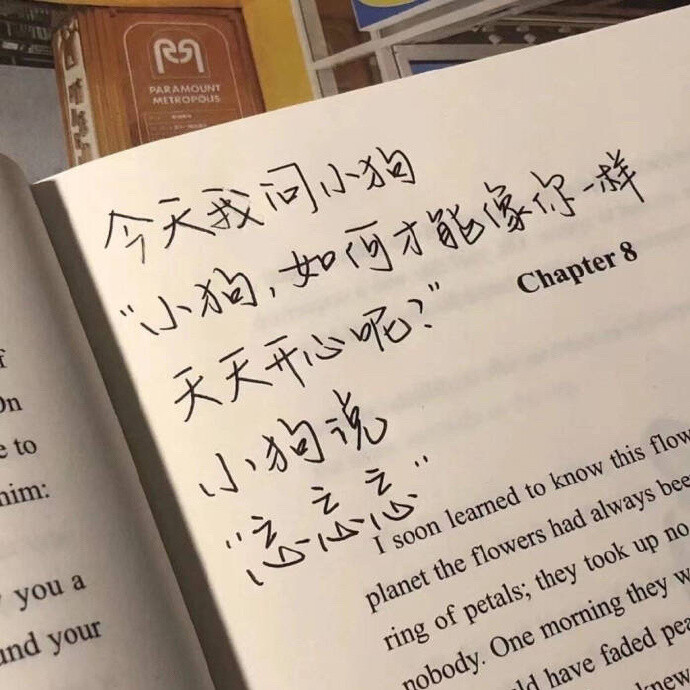 PARAMOUNT
METROPOLIS
今天我问小狗
“小狗,如何才能像你一样
天天开心呢?”
小狗说
“忘忘忘”
On
to
him:
you a
your
Chapter 8
I soon learned to know this flow
planet the flowers had always bee
ring of petals; they took up no
nobody. One morning they w
have faded
knew